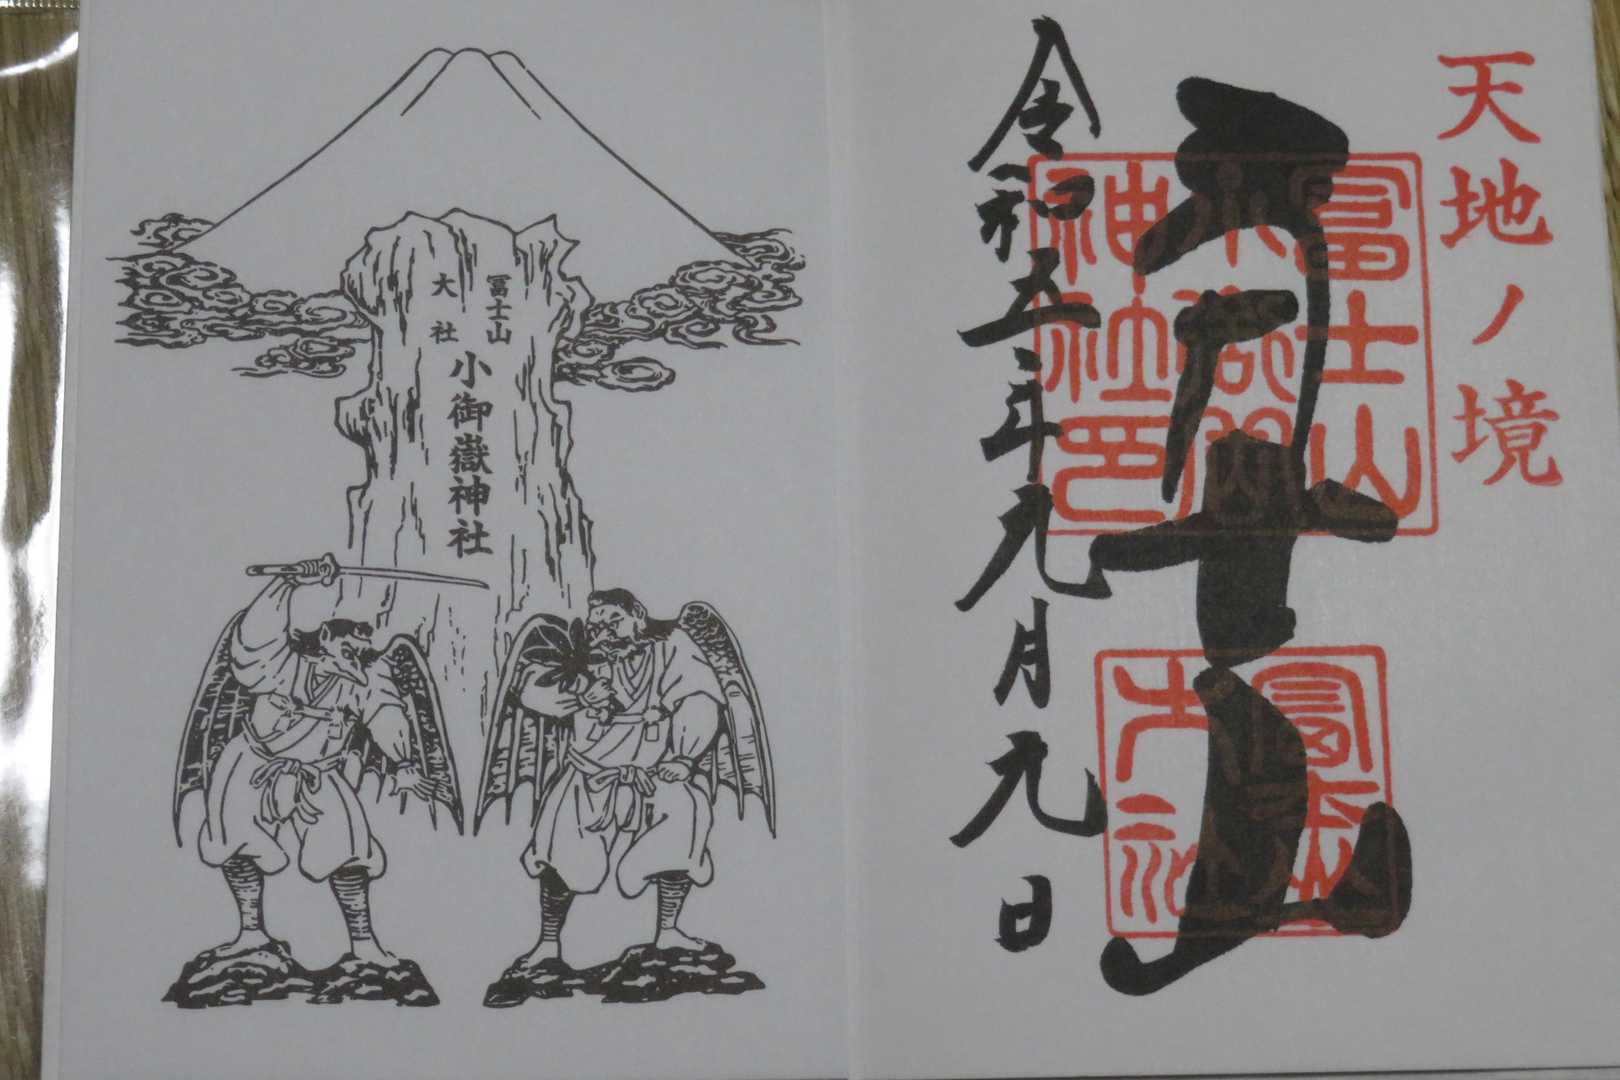 天地ノ境
冨士山
冨士山
神社印
令和五年九月九日
冨士山
大社
小御嶽神社